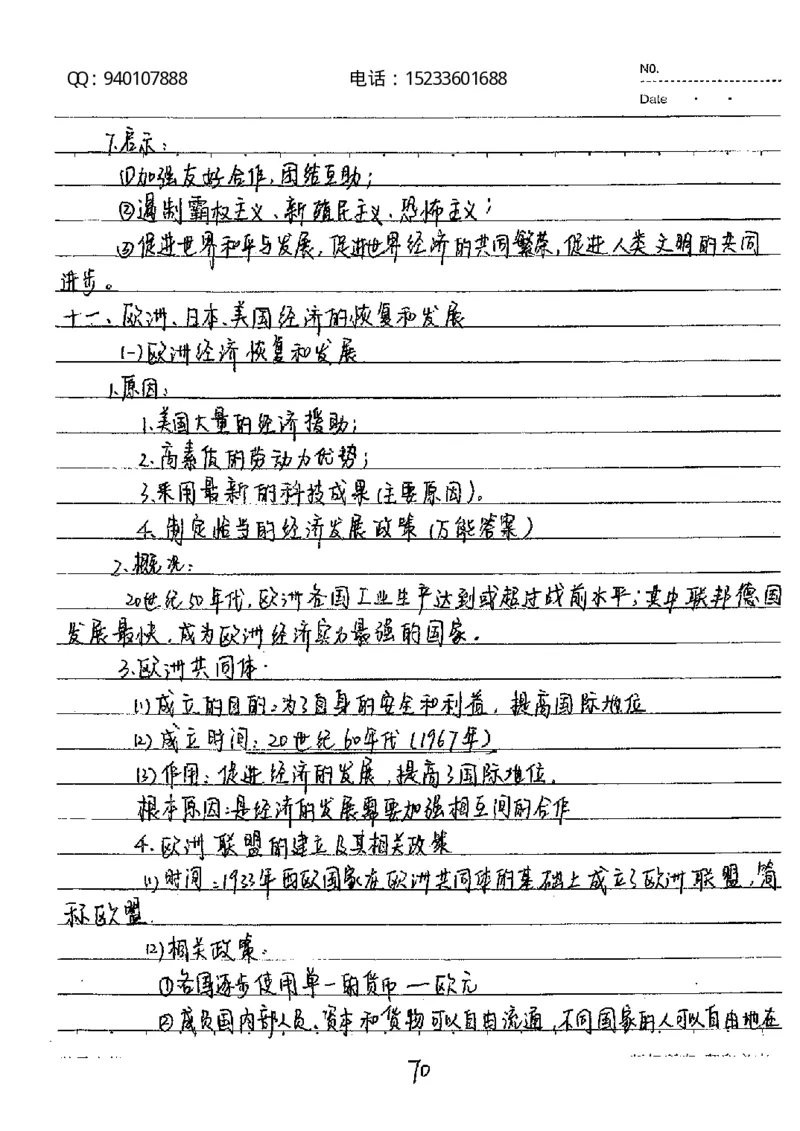 QQ：940107888 电话：15233601688 NO.
Date
7.启示：
①加强友好合作，团结互助；
②遏制霸权主义、新殖民主义、恐怖主义；
③促进世界和平与发展，促进世界经济的共同繁荣，促进人类文明的共同
进步。
十一、欧洲、日本、美国经济的恢复和发展
(一)欧洲经济恢复和发展
1.原因：
1.美国大量的经济援助；
2.高素质的劳动力优势；
3.采用最新的科技成果(主要原因)。
4.制定恰当的经济发展政策(万能答案)
2.概况：
20世纪50年代，欧洲各国工业生产达到或超过战前水平；其中联邦德国
发展最快，成为欧洲经济实力最强的国家。
3.欧洲共同体
(1)成立的目的：为了自身的安全和利益，提高国际地位
(2)成立时间：20世纪60年代(1967年)
(3)作用：促进经济的发展，提高了国际地位。
根本原因：是经济的发展需要加强相互间的合作
4.欧洲联盟的建立及其相关政策
(1)时间：1933年西欧国家在欧洲共同体的基础上成立了欧洲联盟，简
称欧盟。
(2)相关政策：
①各国逐步使用单一的货币—欧元
②成员国内部人员、资本和货物可以自由流通，不同国家的人可以自由地在
70